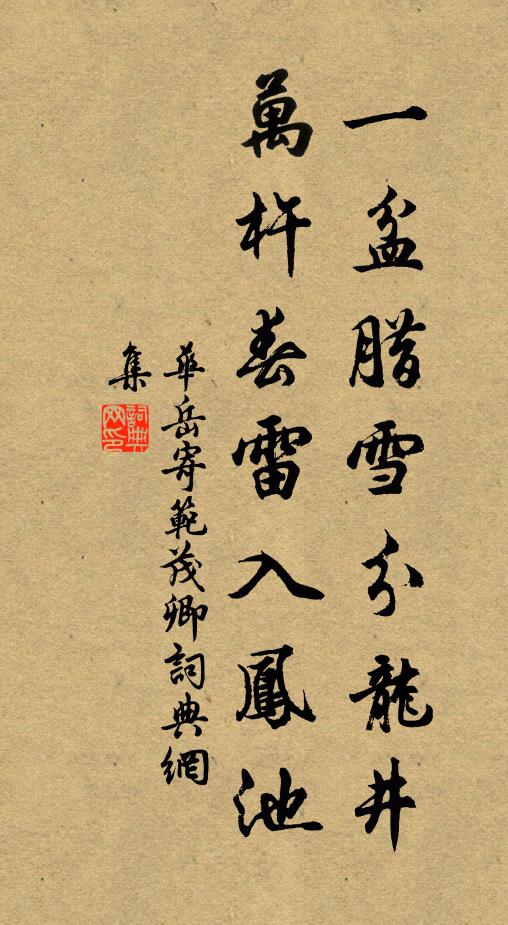 一盆腊雪分龍井
萬杵春雷入鳳池
華岳寄範茂卿詞典網
集
詞典
网印